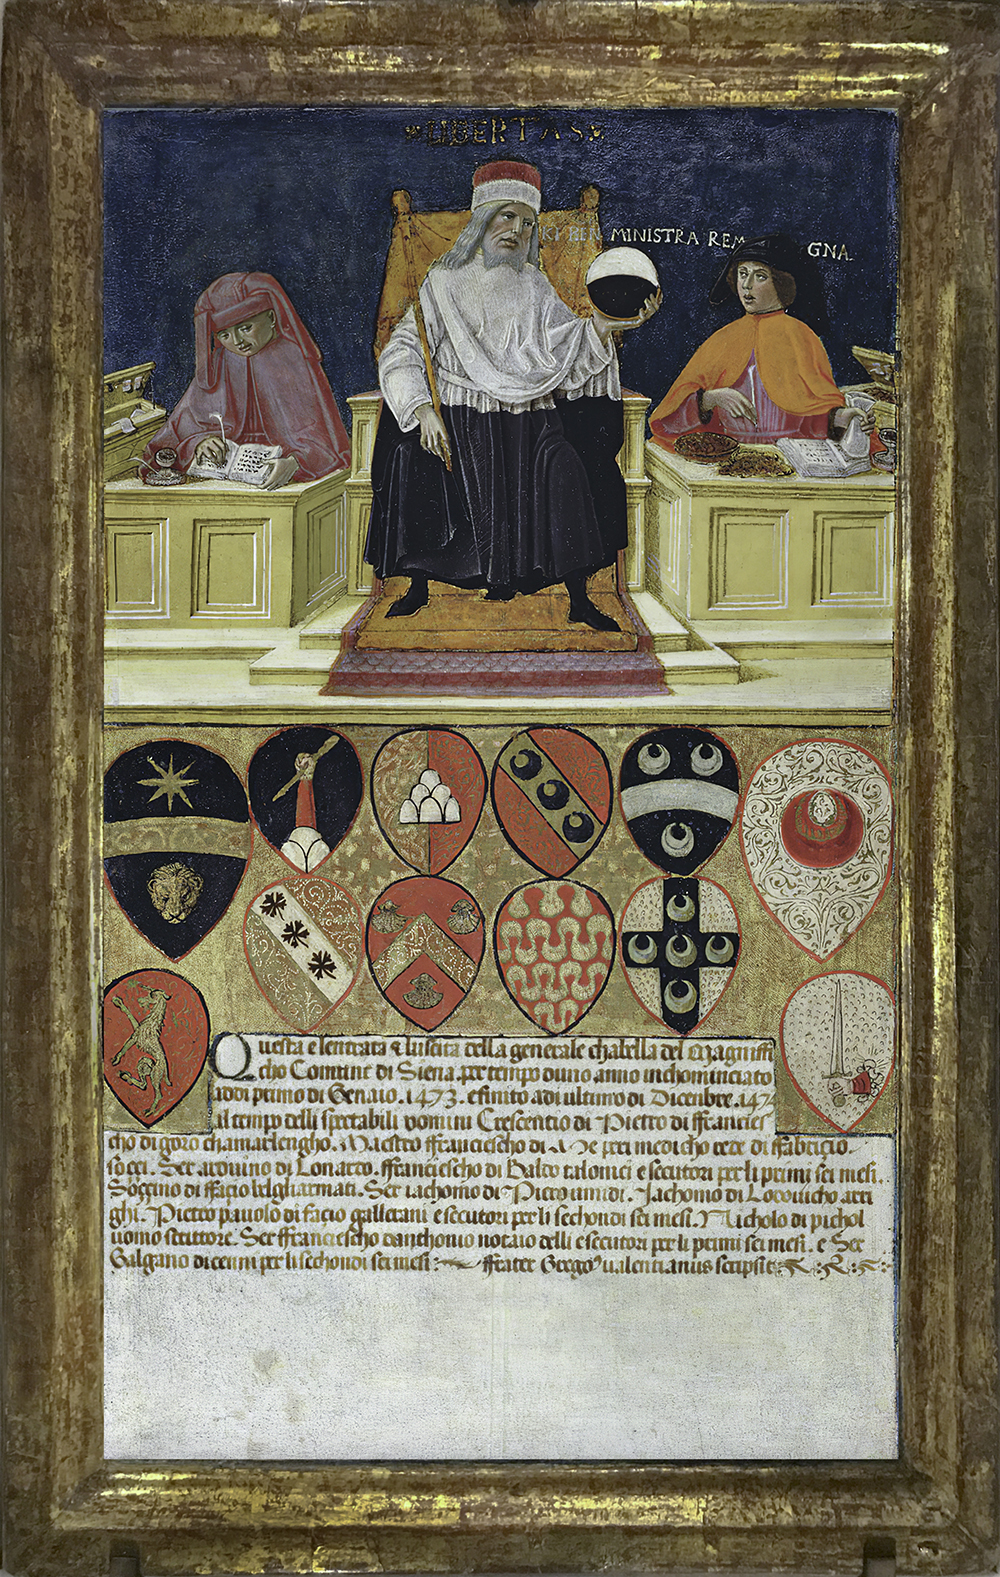 LIBERTAS
KI BEN MINISTRA REM GNA.
Questa e lentrata & luscita della generale chabella del Magniffi
cho Comune di Siena. per tempo duno anno inchominciato
addi primo di Gennaio. 1473. e finito adi ultimo di Dicenbre. 1474
il tempo delli spectabili uomini Crescentio di Pietro di ffrancies
cho di goro chamarlengho. Maestro ffranciescho di
Ser arduino di Lonardo. ffranciescho di Baldo
Soççino di ffatio belgharmati. Ser iachomo di Piero umidi. Iachomo di Lodovicho arri
ghi. Pietro pauolo di fatio gallerani e secutori per li sechondi sei mesi. Nicholo di pichol
uomo scrittore. Ser ffranciescho danthonio notaio delli e secutori per li primi sei mesi. e Ser
Galgano di cenni per li sechondi sei mesi: ffrater Grego9 ualentianus scripsit